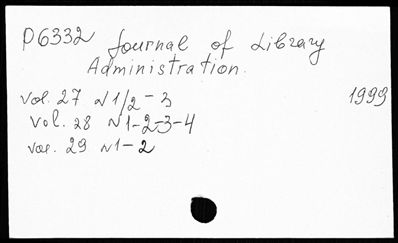 P6332 Journal of Library
Administration.
vol. 27 N1/2-3 1999
vol. 28 N1-2-3-4
vol. 29 N1-2